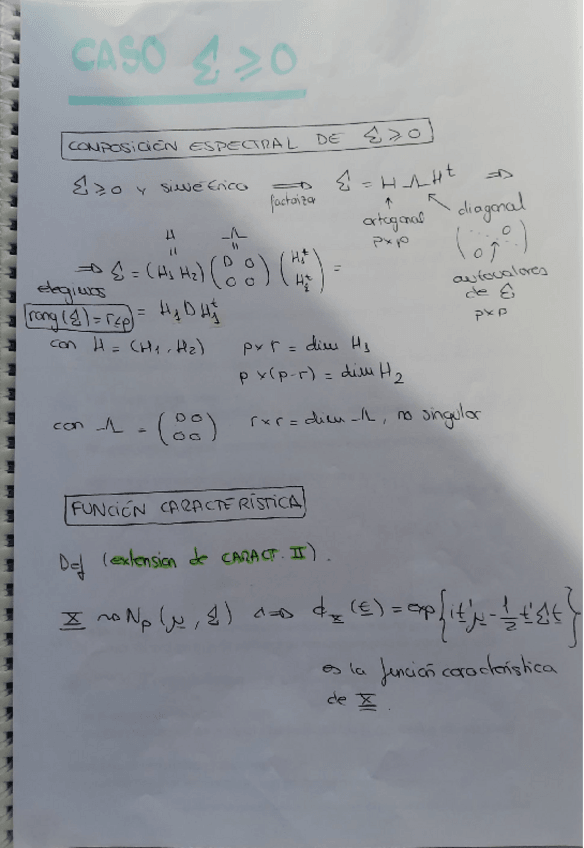 CASO Σ ≥ 0
COMPOSICIÓN ESPECTRAL DE Σ ≥ 0
Σ ≥ 0 y simétrico ⟹ factoriza Σ = H Λ Hᵗ ⟹
↑ ortogonal p×p
↖ diagonal
(0 ⋱ 0)
↑ autovalores de Σ p×p
H Λ
" "
⟹ Σ = (H₁ H₂) (D 0 / 0 0) (H₁ᵗ / H₂ᵗ) =
elegimos
rang(Σ) = r ≤ p = H₁ D H₁ᵗ
con H = (H₁, H₂) p×r = dim H₁
p×(p-r) = dim H₂
con Λ = (D 0 / 0 0) r×r = dim Λ, no singular
FUNCIÓN CARACTERÍSTICA
Def (extension de CARACT. II).
X ~> Nₚ(μ, Σ) <=> ϕ_X(t) = exp{it'μ - 1/2 t'Σt}
es la función característica
de X.